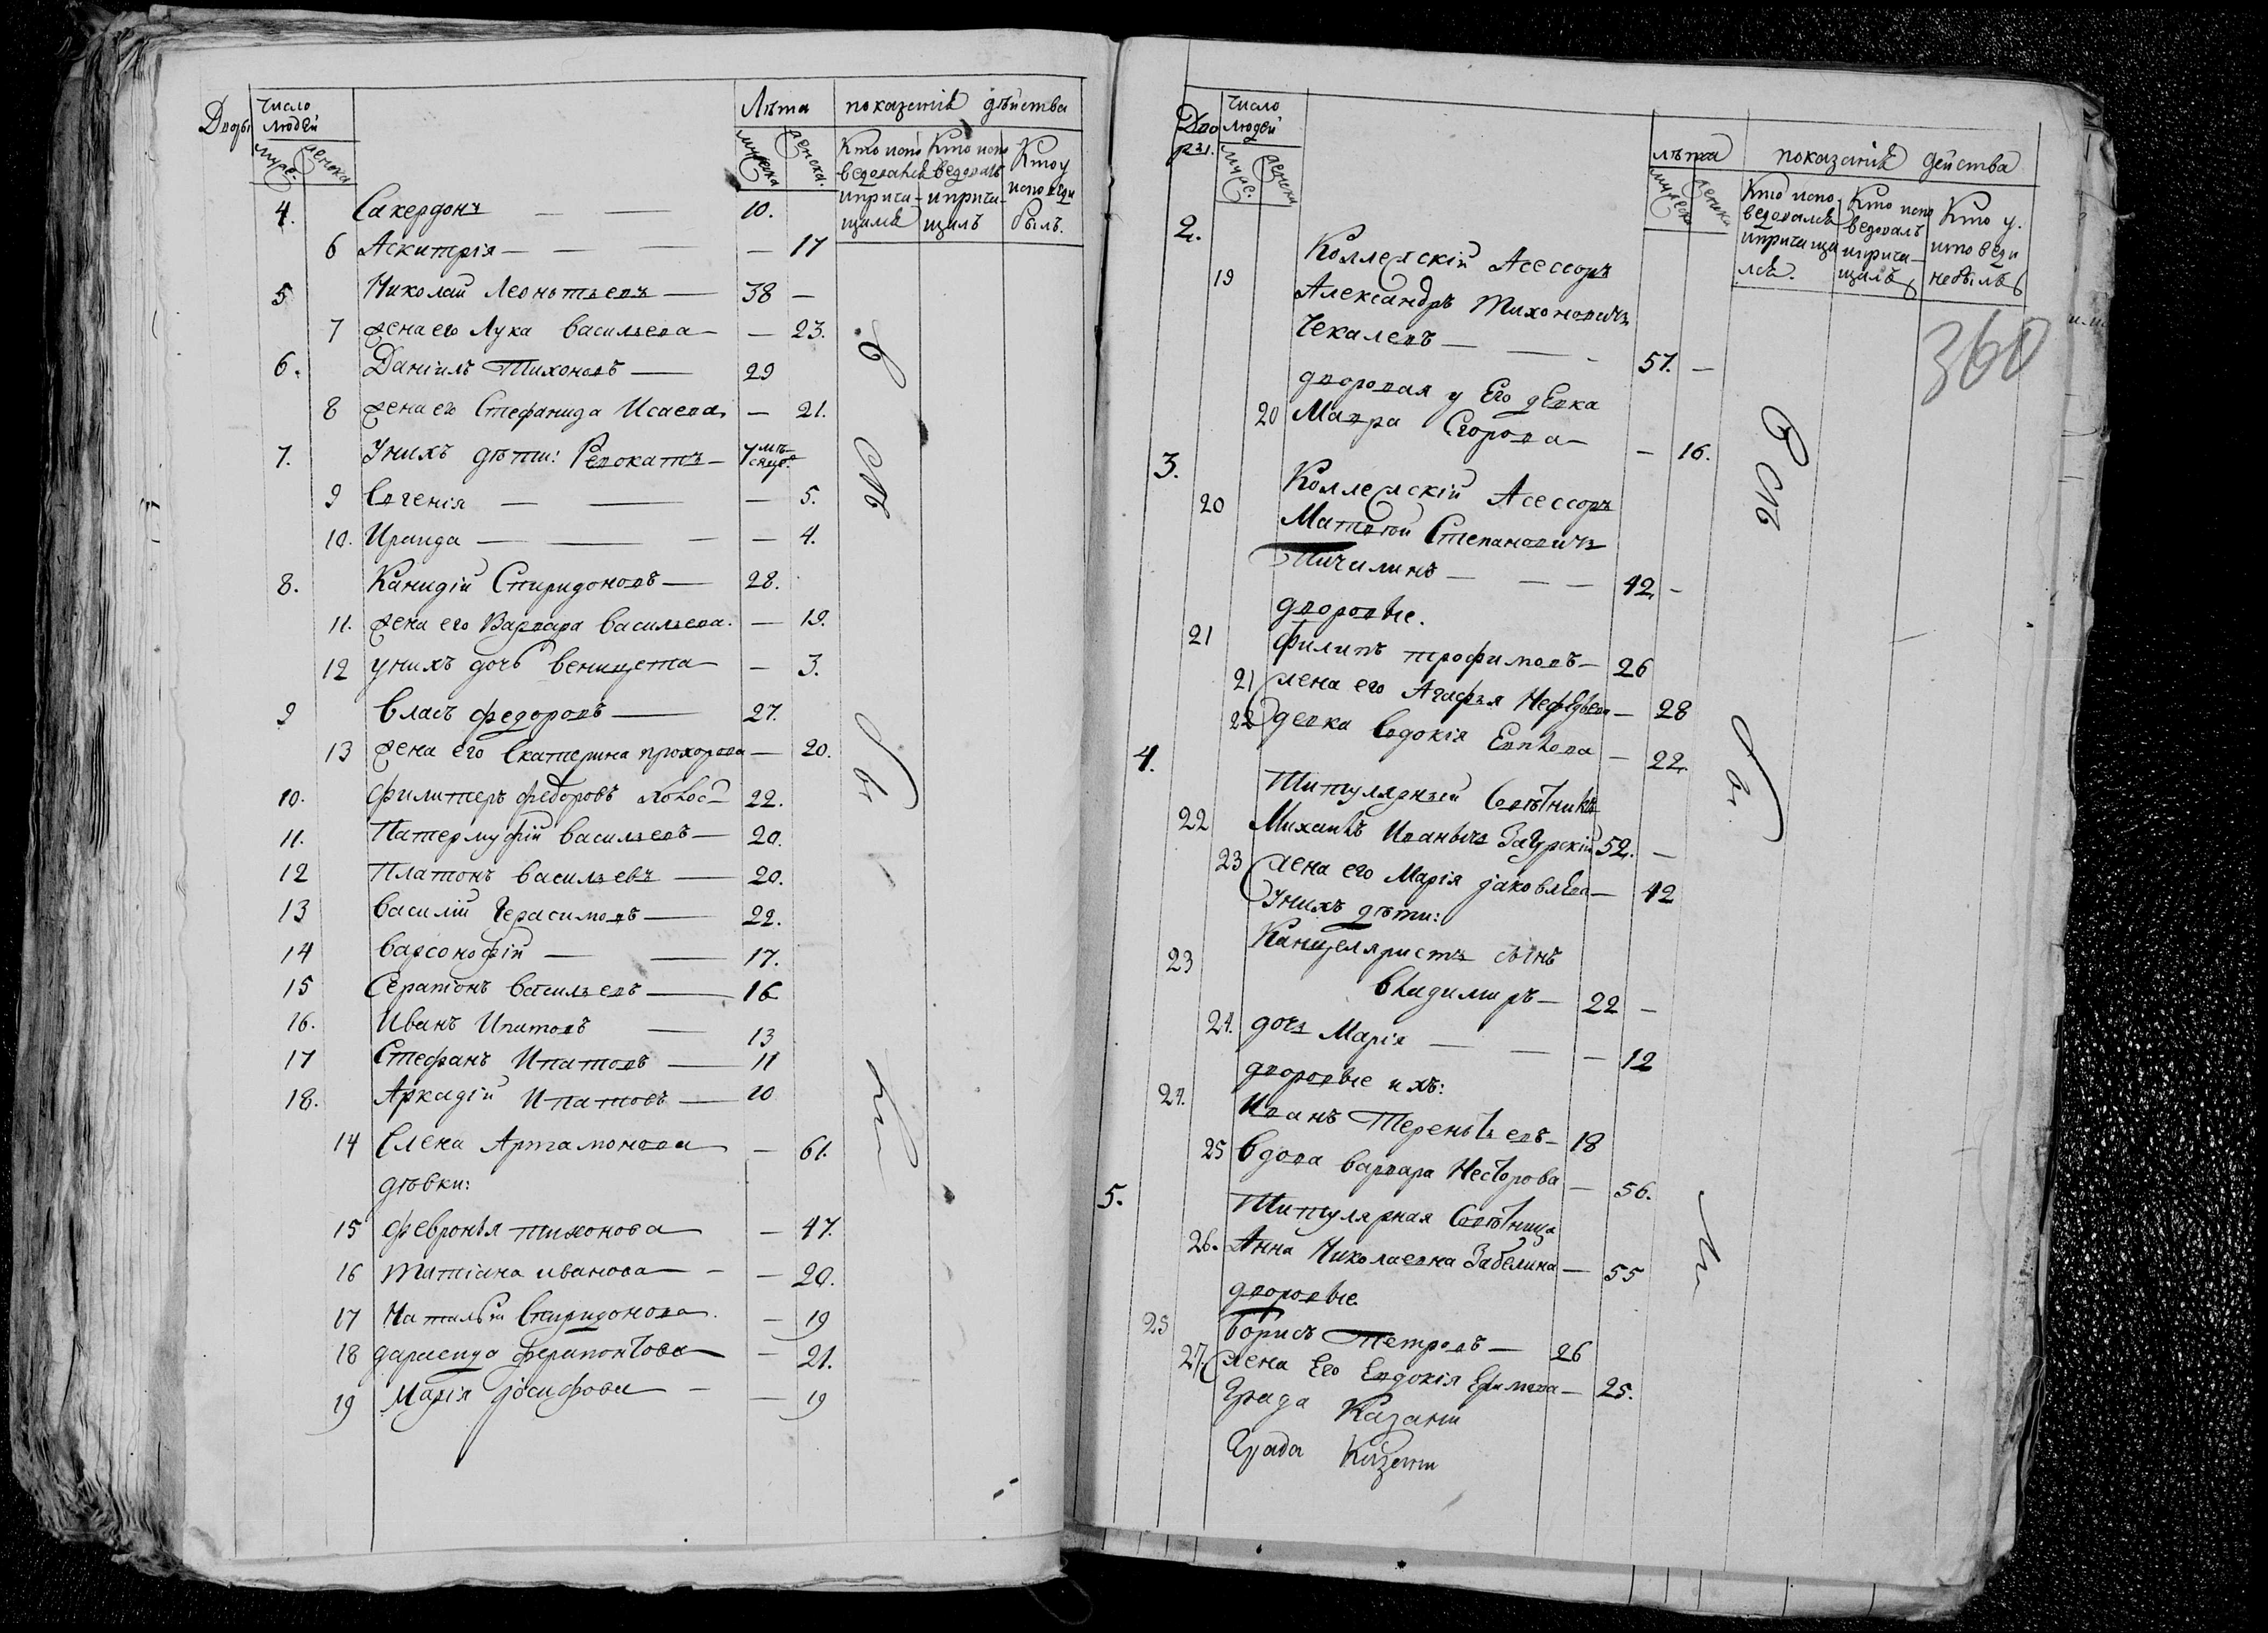 Дворы
Число людей
Лѣта
показанія дѣйства
мужс.
женска
мужска
женска.
Кто исповедался и причащался
Кто исповедалъ и причащалъ
Кто у исповеди былъ.
4. Сакердонъ — — 10.
6 Аскитрія — — — 17
5 Николай Леонтьевъ — 38 —
7 жена его Лука Васильева — — 23.
6. Даніилъ Тихоновъ — 29
8 жена его Стефанида Исаева — 21.
7. У нихъ дѣти: Ревокатъ — 7 мѣсяцъ.
9 Евгенія — — — 5.
10. Ираида — — — — 4.
8. Канидій Спиридоновъ — 28.
11. жена его Варвара Васильева. — 19.
12 у нихъ дочь Веницета — 3.
9 Власъ Федоровъ — 27.
13 жена его Екатерина Прохорова — 20.
10. Филитеръ Федоровъ холос — 22.
11. Патермуфій Васильевъ — 20.
12 Платонъ Васильевъ — 20.
13 Василій Герасимовъ — 22.
14 Варсонофій — — 17.
15 Серапіонъ Васильевъ — 16
16. Иванъ Ипатовъ — 13
17 Стефанъ Ипатовъ — 11
18. Аркадій Ипатовъ — 10
14 Елена Артамонова — 61.
дѣвки:
15 Февронья Тихонова — 47.
16 Татіана Иванова — — — 20.
17 Наталья Спиридонова. — 19
18 Дариенда Ферапонтова — 21.
19 Марія Іосифова — — 19
Дворы.
Число людей
лѣта
показанія действа
мужс.
женска
мужска
женска
Кто исповедался и причащался.
Кто исповедалъ и причащалъ
Кто у исповеди небылъ
360
2. Коллежскій Асессоръ
19 Александръ Тихоновичъ
Чекалевъ — — - 57. —
дворовая у Его дѣвка
20 Мавра Егорова — 16.
3. Коллежскій Асессоръ
20 Матвей Степановичъ
Пичилинъ — — — 42. -
дворовые.
21 Филипъ Трофимовъ — 26
21 жена его Агафья Нефедьева — 28
22 девка Евдокія Евпlова — 22.
4. Титулярный Совѣтникъ
22 Михаилъ Иванычъ Загурскій 52. —
23 жена его Марія Јаковлева — 42
У нихъ дѣти:
23 Канцеляристъ сынъ
Владимиръ — 22 —
24. дочь Марія — — — 12
дворовые ихъ:
24. Иванъ Терентьевъ — 18
25 Вдова Варвара Несторова — 56.
5. Титулярная Совѣтница
26. Анна Николаевна Забелина — 55
дворовые
25 Борисъ Петровъ — 26
27. жена Его Евдокія Ефимова — 25.
Града Казани
Града Казани